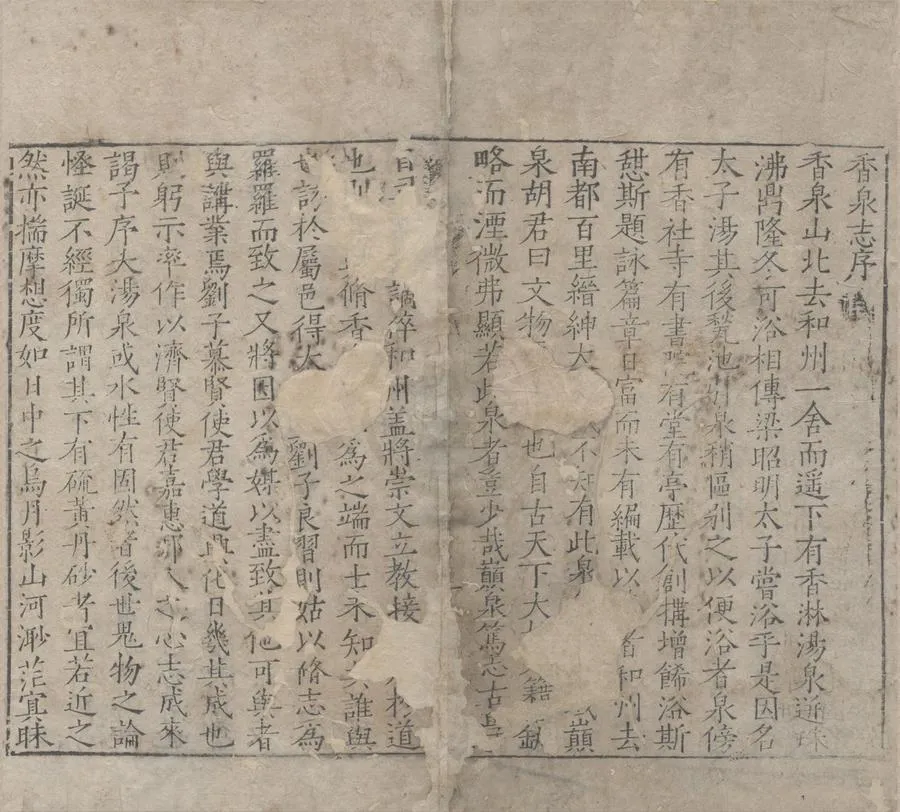 香泉志序
香泉山北去和州一舍而遥下有香淋湯泉迸珠
沸鼎隆冬可浴相傳梁昭明太子嘗浴乎是因名
太子湯其後甃池泉稍區别之以便浴者泉傍
有香社寺有書有堂有亭歷代創搆增餙浴斯
憇斯題詠篇章日富而未有編載以首和州去
南都百里縉紳大不知有此泉顛
泉胡君曰文物也自古天下大籍
略而湮微弗顯若此泉者豈少哉巔泉篤志古
誠倅和州盖將崇文立教接道
脩香為之端而士未知誰與
於屬邑得大劉子良習則姑以脩志為
羅羅而致之又將因以為媒以盡致其他可與者
與講業焉劉子慕賢使君學道典代日幾其成也
躬示率作以濟賢使君嘉惠人之心志成來
謁予序大湯泉或水性有固然者後世鬼物之論
恠誕不經獨所謂其下有硫黄丹砂者宜若近之
然亦揣摩想度如日中之烏月影山河渺茫冥昧